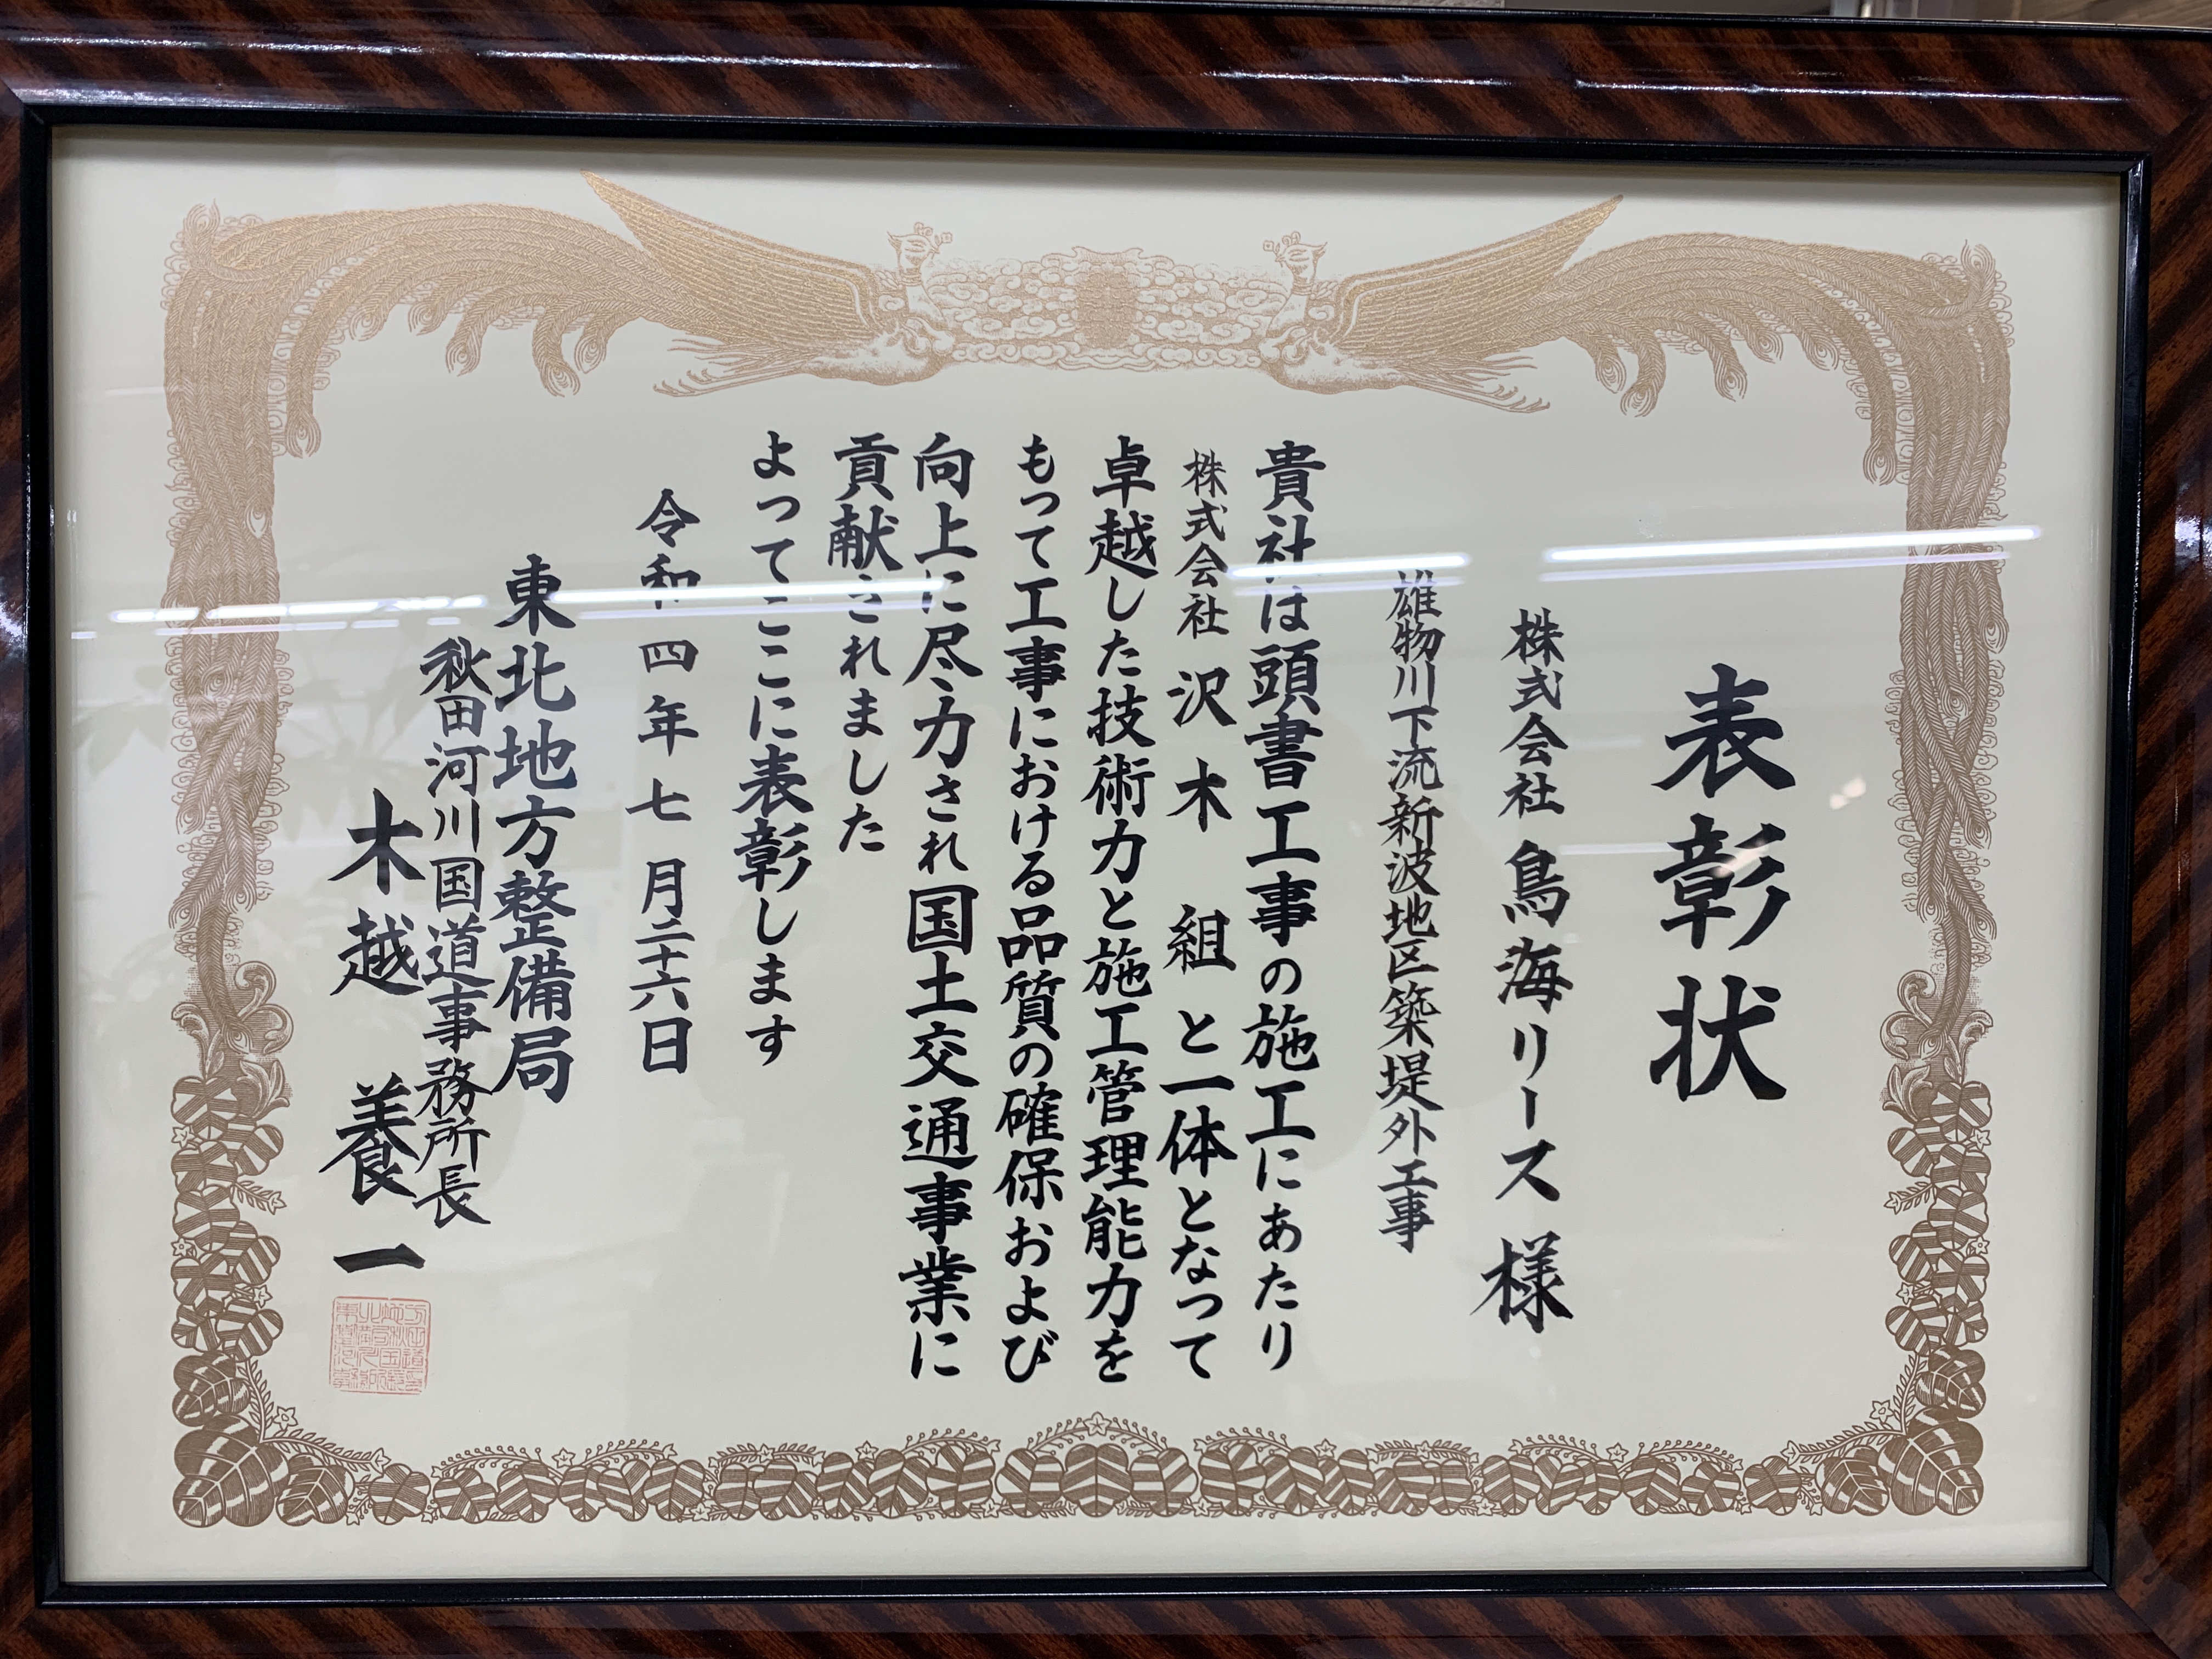 表彰状
株式会社 鳥海リース 様
雄物川下流新波地区築堤外工事
貴社は頭書工事の施工にあたり
株式会社 沢木 組 と一体となって
卓越した技術力と施工管理能力を
もって工事における品質の確保および
向上に尽力され国土交通事業に
貢献されました
よってここに表彰します
令和四年七月二十六日
東北地方整備局
秋田河川国道事務所長
木越 養一